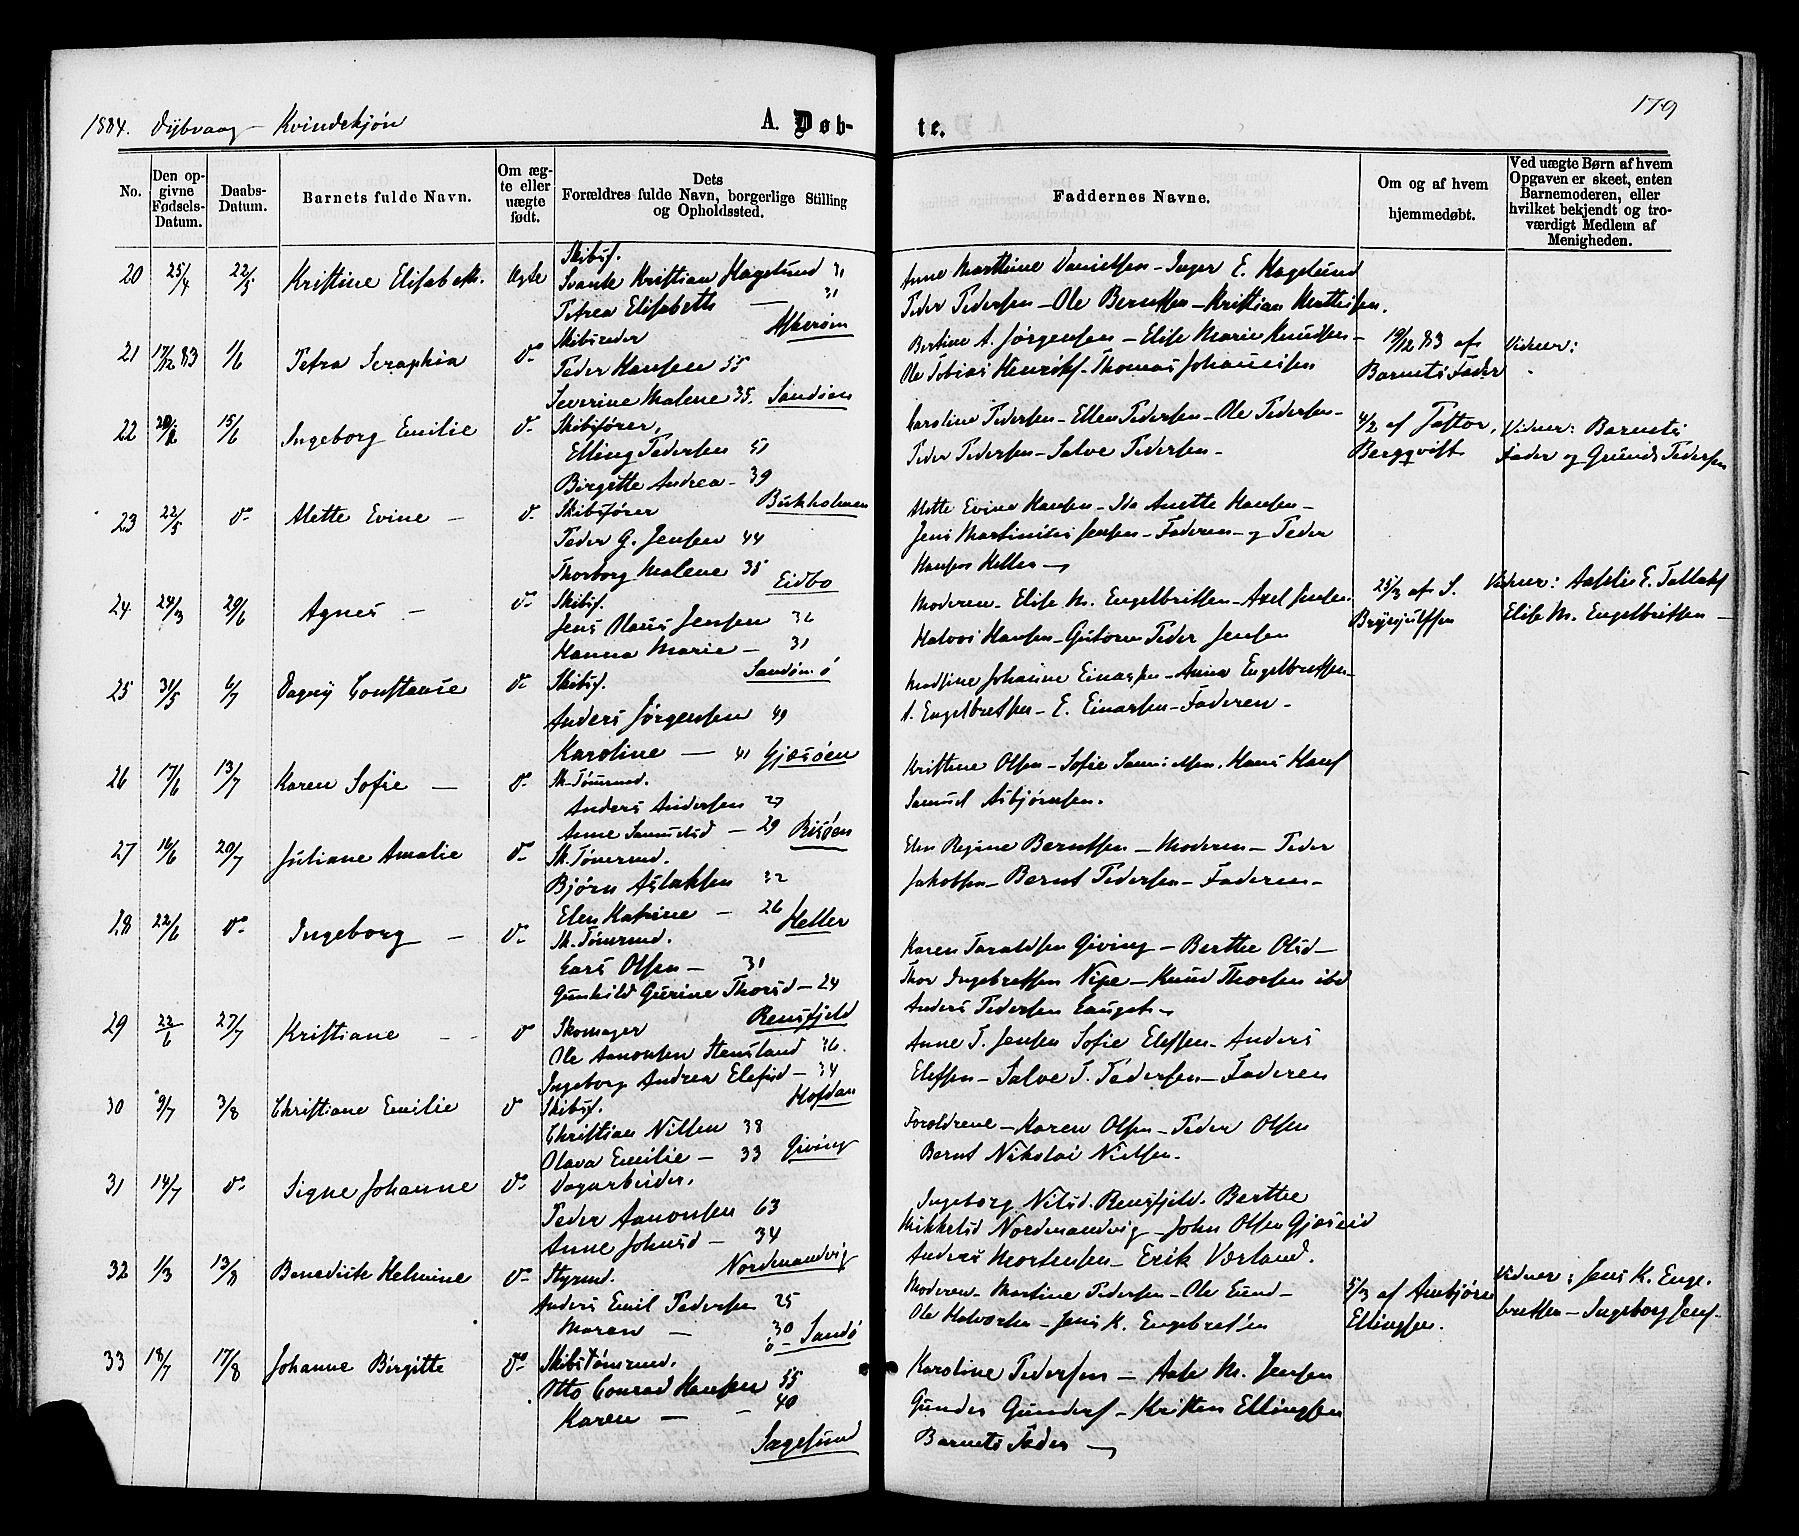 1884. Dybvaag - Kvindekjøn
A. Døb-
te.
179
No.
Den op-
givne
Fødsels-
Datum.
Daabs-
Datum.
Barnets fulde Navn.
Om æg-
te eller
uægte
født.
Dets
Forældres fulde Navn, borgerlige Stilling
og Opholdssted.
Faddernes Navne.
Om og af hvem
hjemmedøbt.
Ved uægte Børn af hvem
Opgaven er skeet, enten
Barnemoderen, eller
hvilket bekjendt og tro-
værdigt Medlem af
Menigheden.
20 25/4 22/5 Kristine Elisabeth. Ægte Skibsf.
Svante Kristian Hagelund 31
Petrea Elisabeth — 31
Askerøen
Anne Marthine Danielsen - Inger E. Hagelund
Peder Pedersen - Ole Berntsen - Kristian
21 17/12 83 1/6 Petra Seraphia do Skibsreder
Peder Hansen 55
Severine Malene 35. Sandøen
Bertine A. Jørgensen - Elise Marie Knudsen -
Ole Tobias - Thomas Johannesen
19/12 83 af
Barnets Fader
Vidner:
22 15/6 Ingeborg Emilie do Skibsfører,
Elling Pedersen 51
Birgitte Andrea - 39
Birkholmen
Karoline Pedersen - Ellen Pedersen - Ole Pedersen -
Peder Pedersen - Salve Pedersen -
4/2 af
Bergqvist
Vidner: Barnets
Fader og Pedersen
23 22/5 do Mette Evine - do Skibsfører
Peder G. Jensen 44
Thorborg Malene 35
Eidbo
Mette Evine Hansen - Ida Anette Hansen -
Jens Martinius Jensen - Faderen - og Peder
Hansen Heller -
24 24/3 29/6 Agnes - do Skibsf.
Jens Olaus Jensen 32
Hanna Marie - 31
Sandøen ø
Moderen - Elise M. Engelbritsen - Axel Jensen
Halvor Hansen - Peder Jensen
25/3 af S.
Brynjulfsen
Vidner: E.
Elise M. Engelbritsen -
25 31/5 6/7 Dagny Constanse do Skibsf.
Anders Jørgensen 49
Karoline — 41 Gjæsøen
Johanne Einarsen - Anna Engelbretsen -
A. Engelbretsen - E. Einarsen - Faderen -
26 17/6 13/7 Karen Sofie - do Sk. Tømrmd.
Anders Andersen 27
Anne Samuelsd - 29 Risøen
Kristine Olsen - Sofie - Hans
Samuel Asbjørnsen.
27 16/6 20/7 Juliane Amalie do Sk. Tømrmd.
Bjørn Aslaksen 32
Elen Katrine - 26
Heller
Elen Regine Berntsen - Moderen - Peder
Jakobsen - Bernt Pedersen - Faderen -
28 22/6 do Ingeborg - do Sk. Tømrmd.
Lars Olsen - 31
Gunhild Gurine Thorsd - 24
Rensfjeld
Karen Taraldsen Giving - Berthe Olsd -
Thor Ingebretsen Nipe - Knud Thorsen ibd
Anders Pedersen
29 22/6 27/7 Kristiane - do Skomager
Ole Aanonsen Stensland 36.
Ingeborg Andrea Elefsd - 34
Hofdan
Anne T. Jensen Sofie Elefsen - Anders
Elefsen - Salve T. Pedersen - Faderen
30 9/7 3/8 Christiane Emilie do Skibsf.
Christian Nilsen 38
Olava Emilie - 33 Giving
Forældrene - Karen Olsen - Peder Olsen
Bernt Nikolai Nielsen.
31 14/7 do Signe Johanne do Dagarbeider.
Peder Aanonsen 63
Anne Johnsd - 34
Nordmandvig
Ingeborg Nilsd. Rensfjeld. Berthe
Mikkelsd Nordmandvig - John Olsen
Anders Mortensen - Erik Værland.
32 1/3 13/8 Benedikte Helmine do Styrmd.
Anders Emil Pedersen 25
Maren - 30 Sandø
Moderen - Martine Pedersen - Ole Lund -
Ole Halvorsen - Jens K. Engebretsen
5/3 af Annbjørn
Ellingsen.
Vidner: Jens K. Enge-
bretsen - Ingeborg
33 18/7 17/8 Johanne Birgitte do Skibstømrmd.
Otto Conrad Hansen 55
Karen — 40
Sagesund
Karoline Pedersen - Aase M. Jensen
Gunder - Kristen Ellingsen
Barnets Fader -